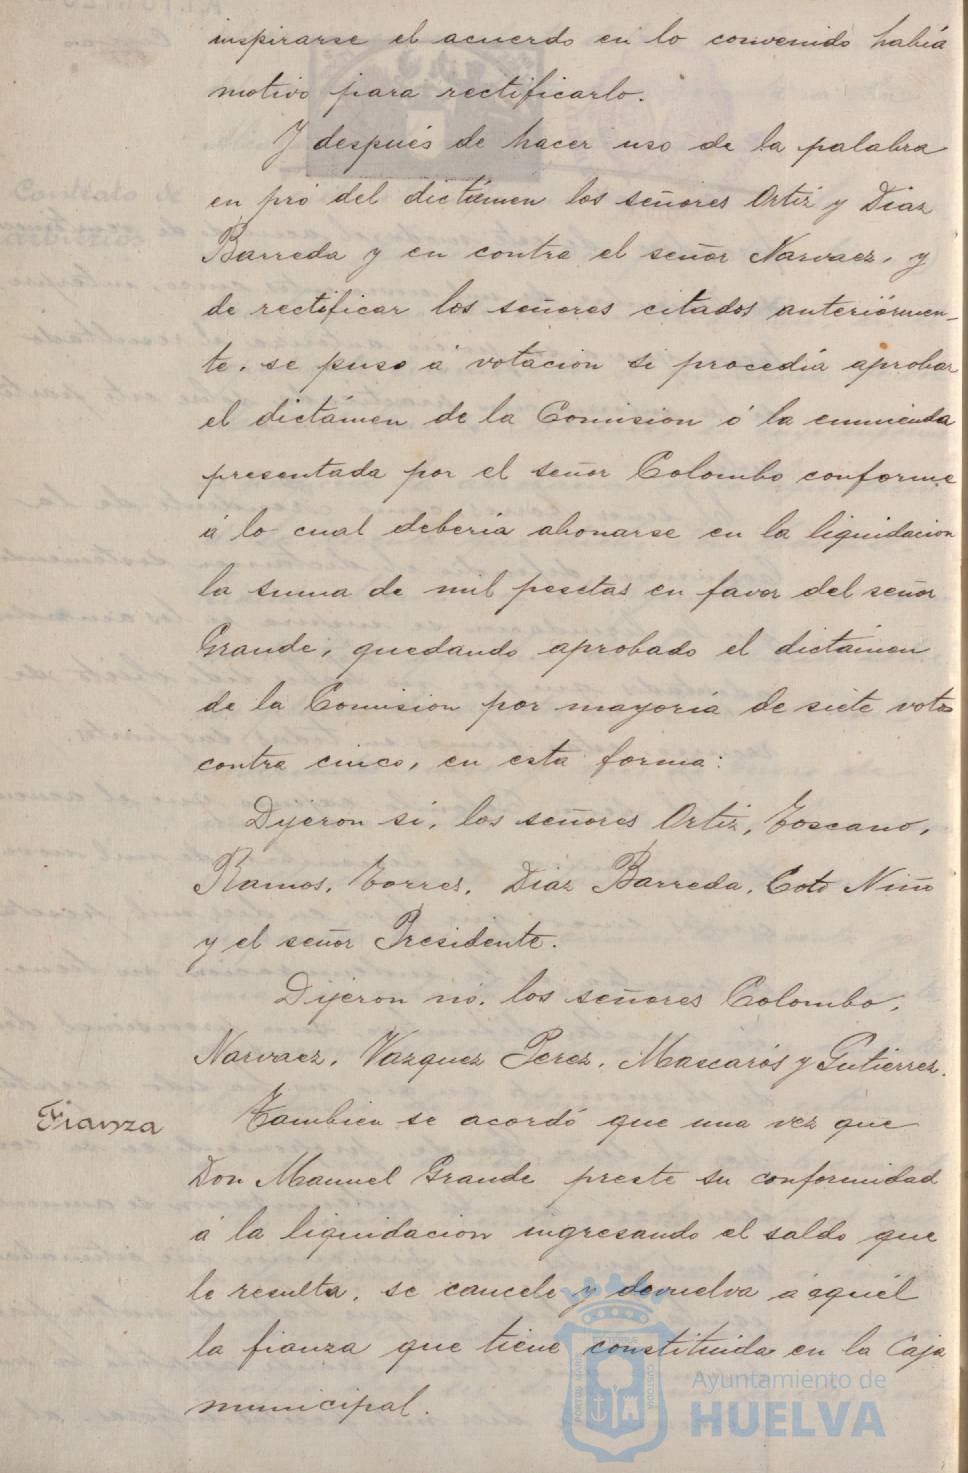 inspirarse el acuerdo en lo convenido había
motivo para rectificarlo.
Y después de hacer uso de la palabra
en pró del dictámen los señores Ortiz y Diaz
Barreda y en contra el señor Narvaez, y
de rectificar los señores citados anteriórmen-
te, se puso á votacion si procedía aprobar
el dictámen de la Comision ó la enmienda
presentada por el señor Colombo conforme
á lo cual debería abonarse en la liquidacion
la suma de mil pesetas en favor del señor
Grande; quedando aprobado el dictámen
de la Comision por mayoría de siete votos
contra cinco, en esta forma:
Dijeron sí, los señores Ortiz, Toscano,
Ramos, Torres, Diaz Barreda, Coto Niño
y el señor Presidente.
Dijeron nó, los señores Colombo,
Narvaez, Vazquez Perez, Mascarós y Gutierrez.
Fianza
Tambien se acordó que una vez que
Don Manuel Grande preste su conformidad
á la liquidacion ingresando el saldo que
le resulta, se cancele y devuelva á aquél
la fianza que tiene constituida en la Caja
municipal.
PORTUS MARIS
CUSTODIA
Ayuntamiento de
HUELVA